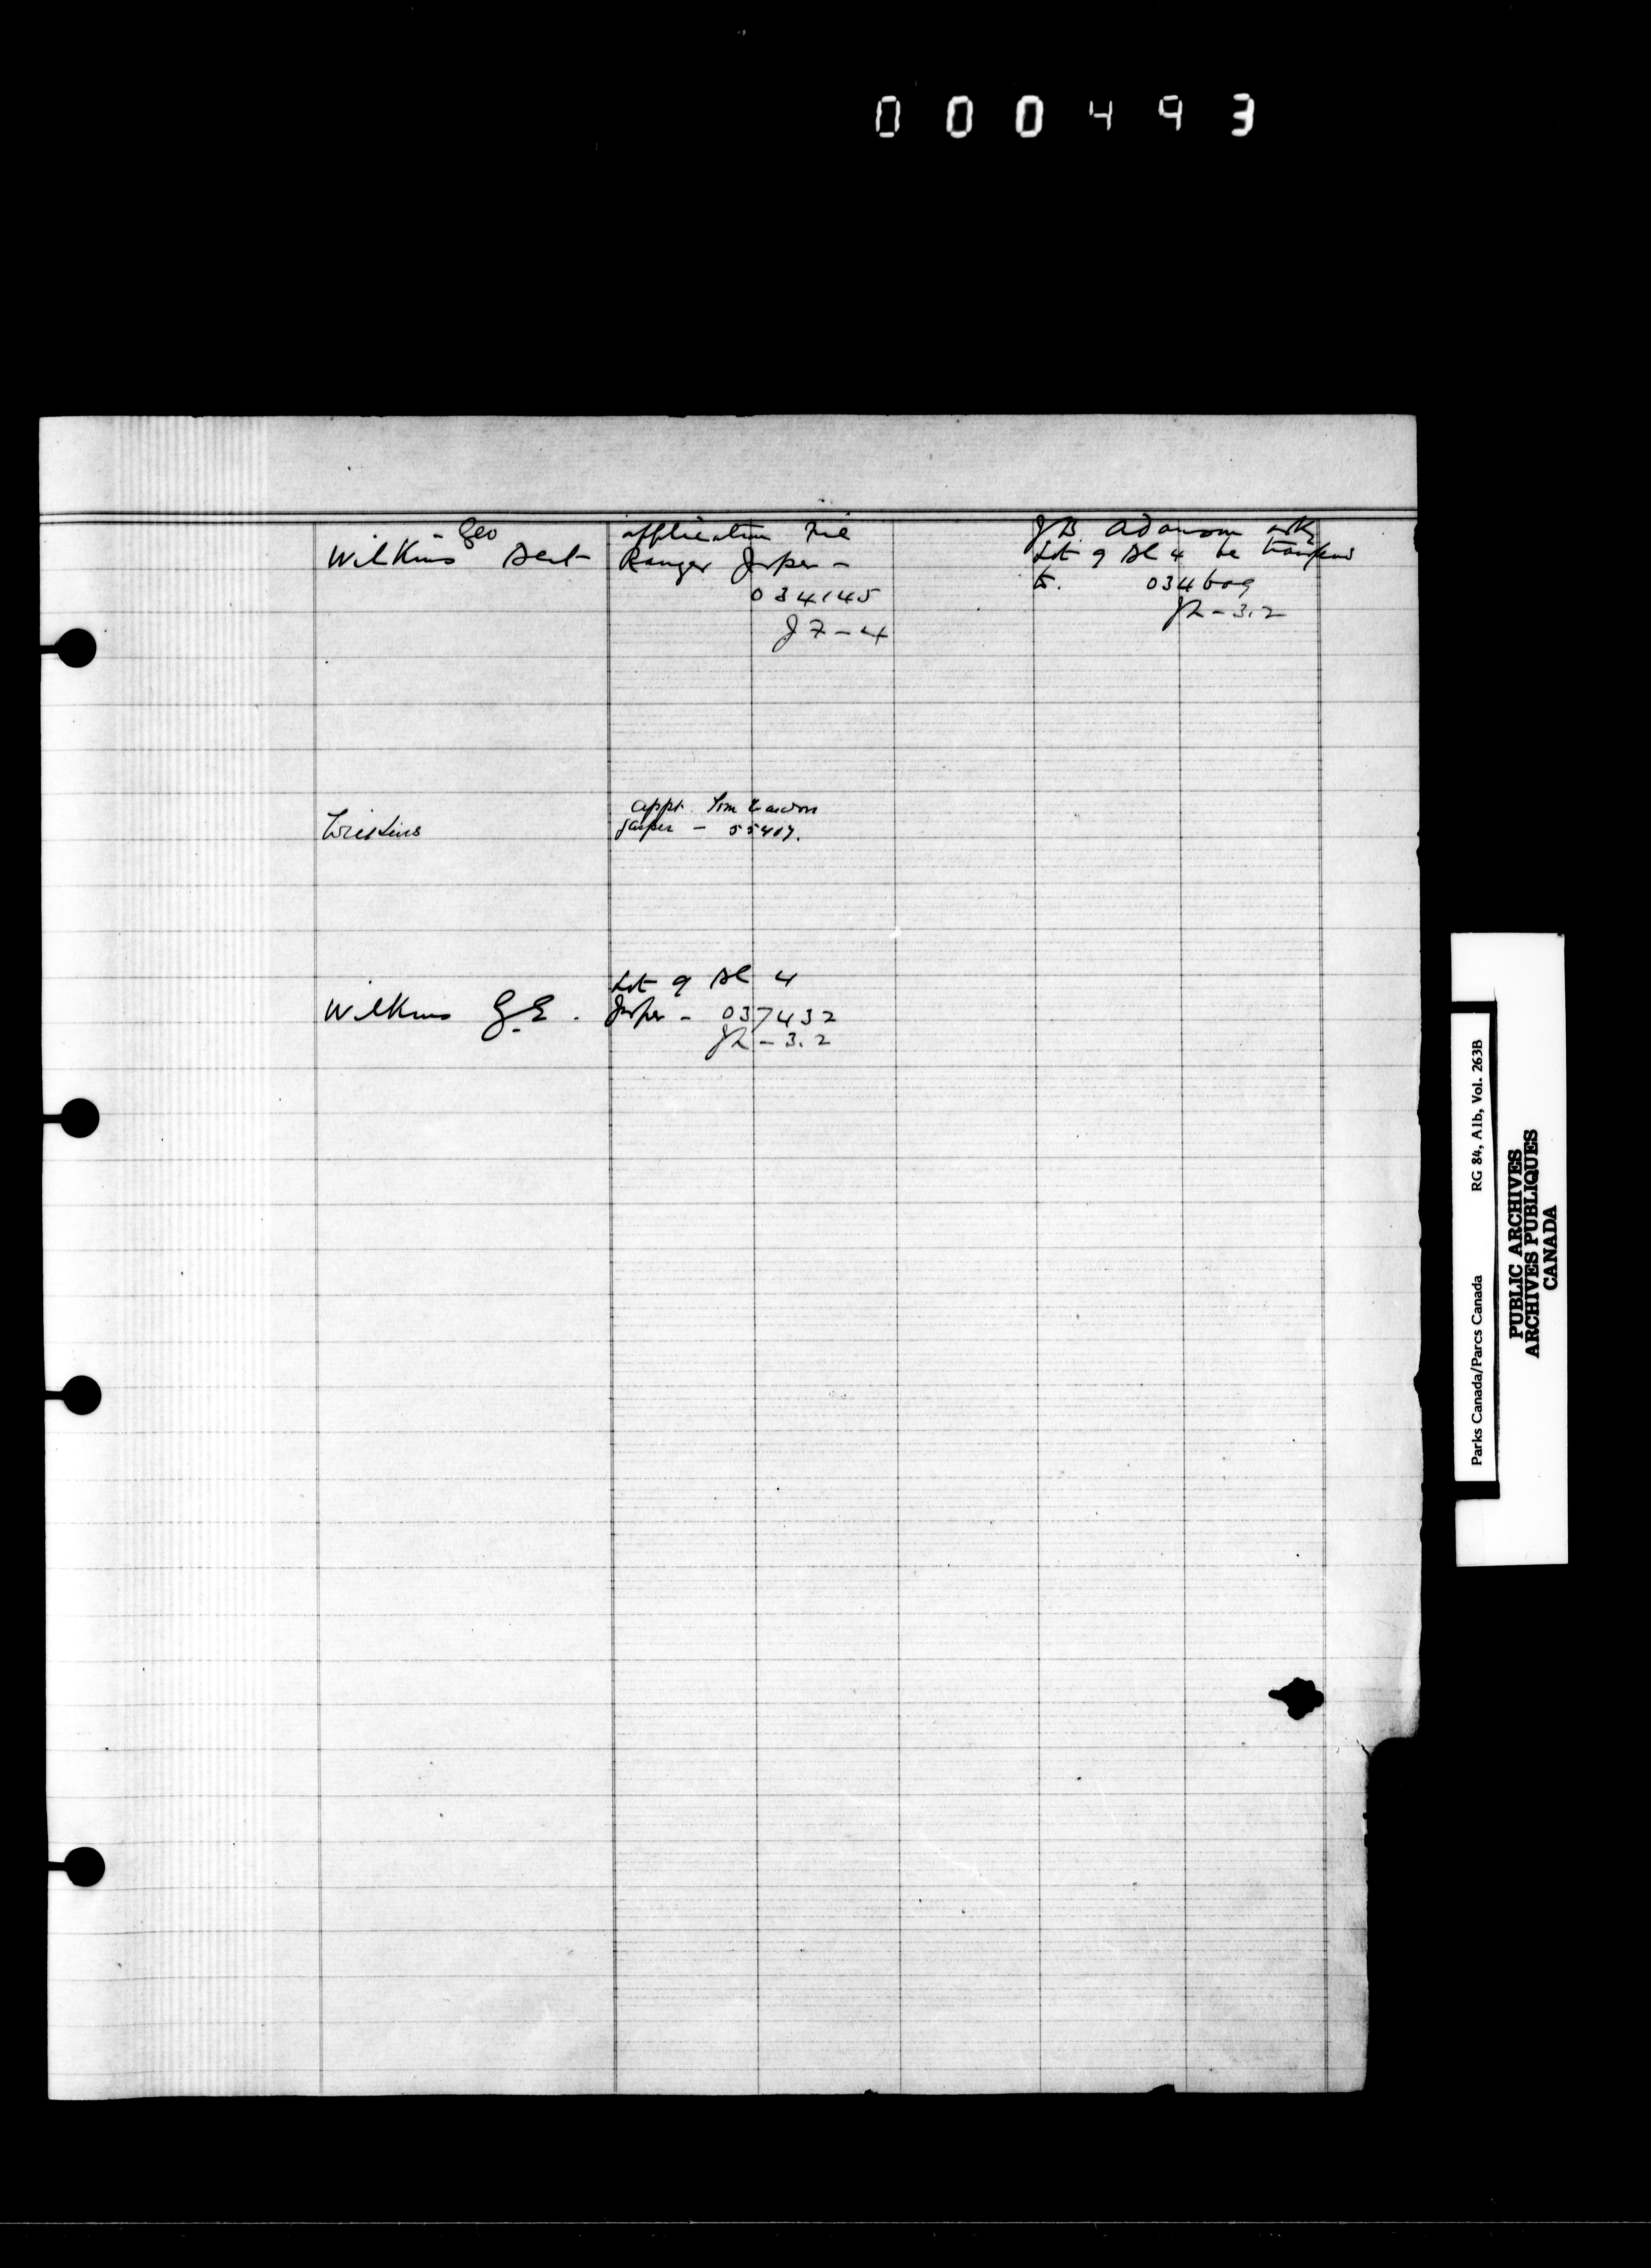 000493
Geo
Wilkins
application Fire
Ranger Jasper -
034145
J7-4
J.B. Adamson asks
Lot 9 Bl 4 be transferred
to. 034609
J2-3.2
Wilkins
appt.
Jasper - 55407.
Lot 9 Bl 4
Wilkins G.E. Jasper - 037432
J2-3.2
Parks Canada/Parcs Canada RG 84, Alb, Vol. 263B
PUBLIC ARCHIVES
ARCHIVES PUBLIQUES
CANADA